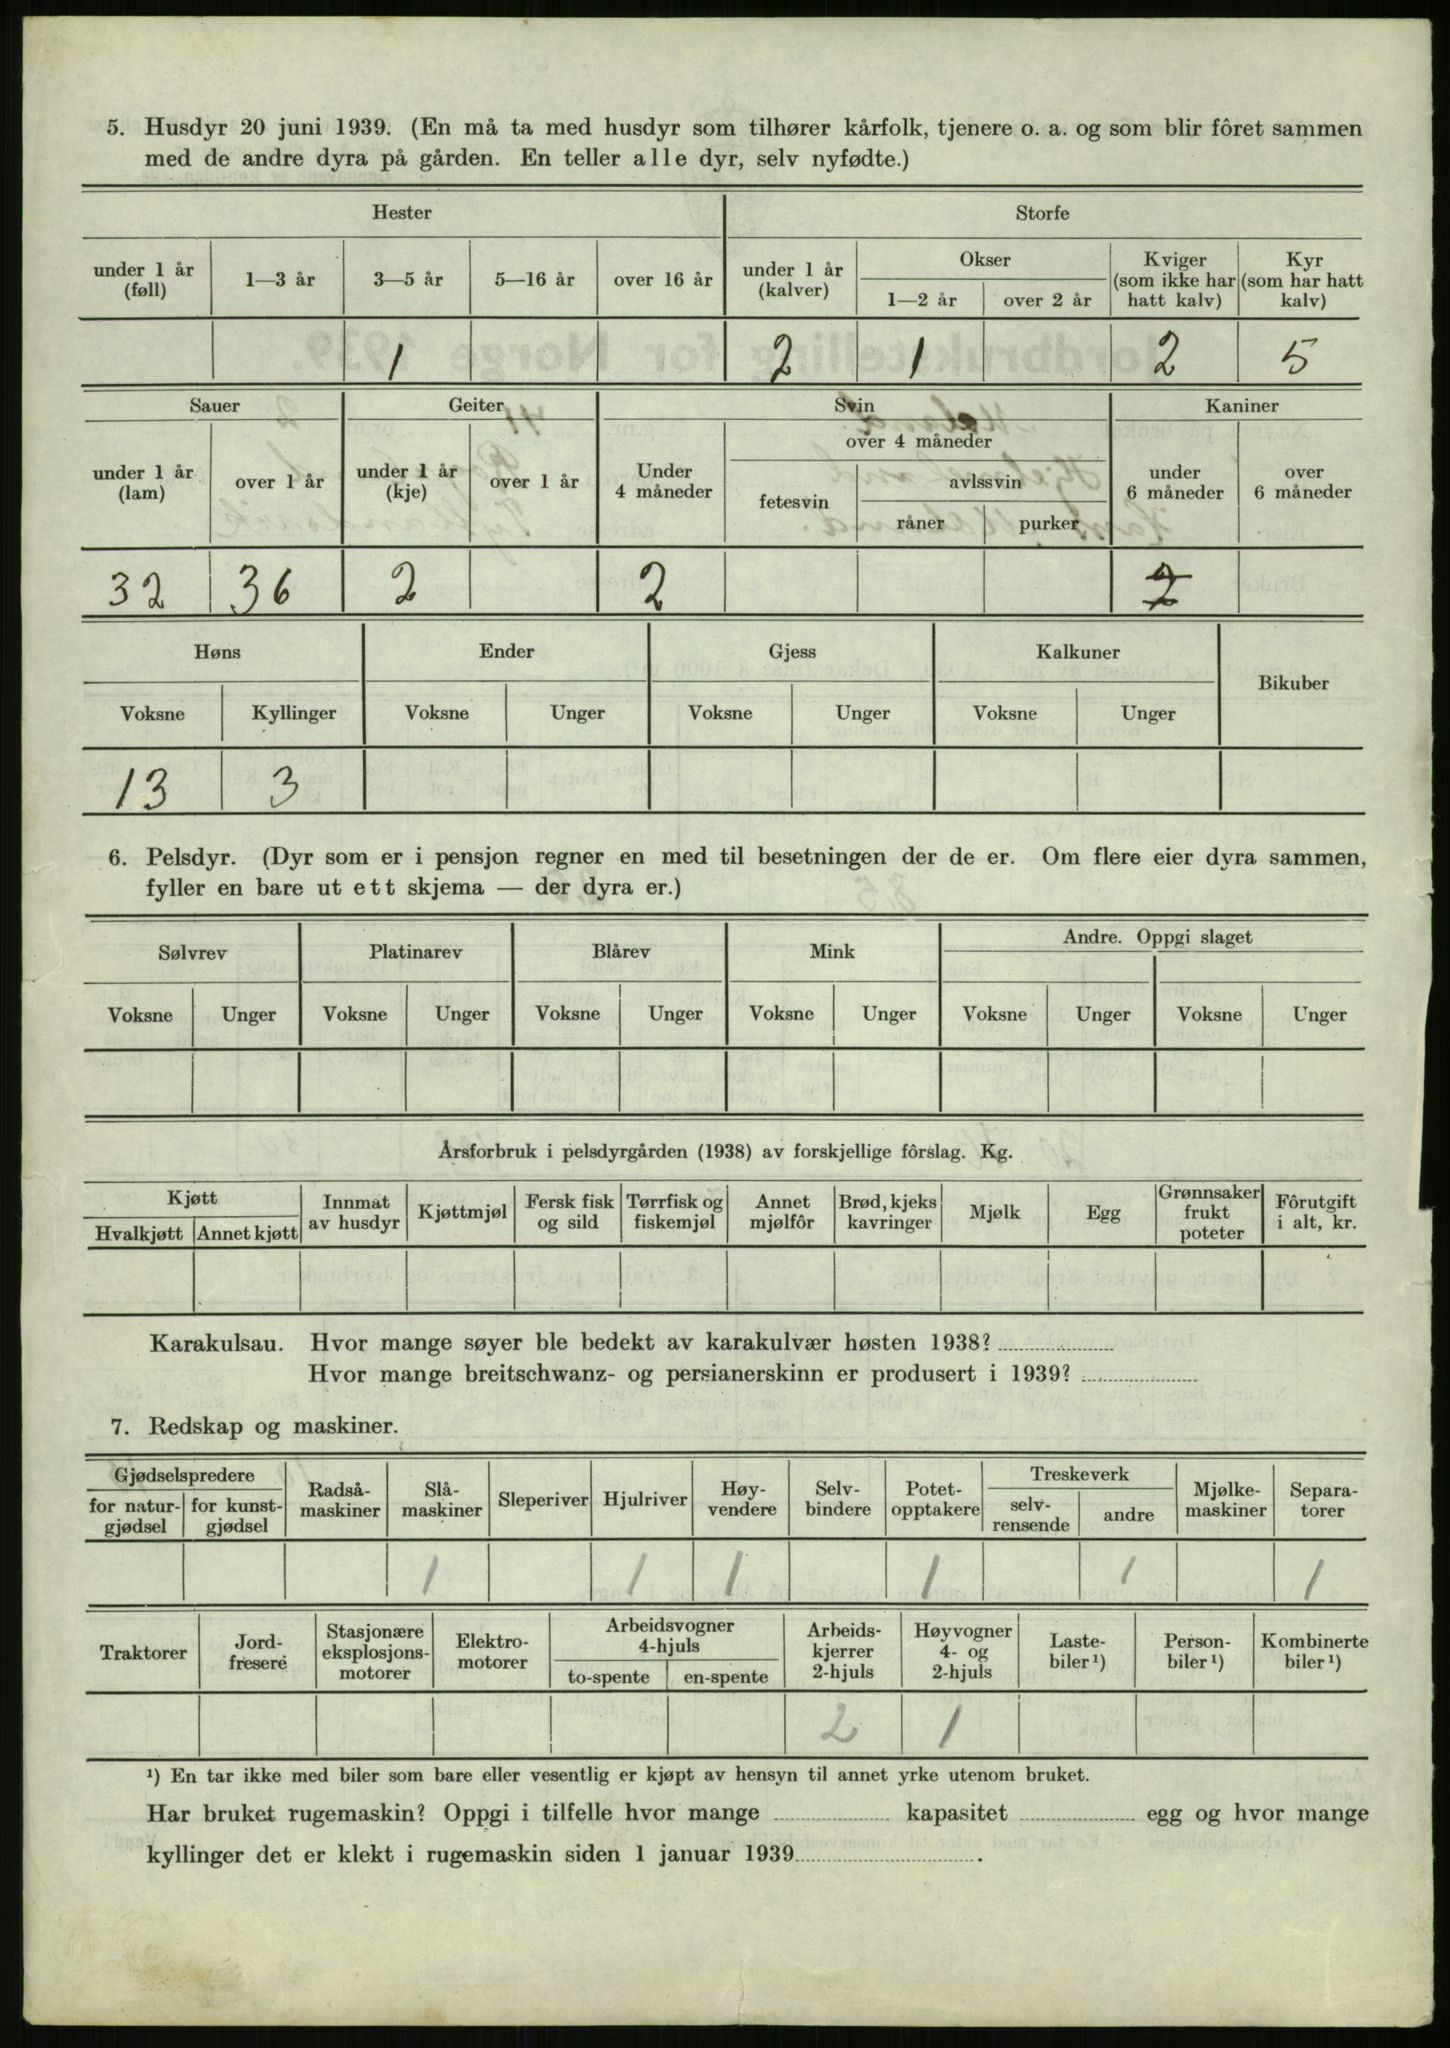 5. Husdyr 20 juni 1939. (En må ta med husdyr som tilhører kårfolk, tjenere o. a. og som blir fôret sammen
med de andre dyra på gården. En teller alle dyr, selv nyfødte.)
Hester Storfe
under 1 år (føll) 1—3 år 3—5 år 5—16 år over 16 år under 1 år (kalver) Okser 1—2 år over 2 år Kviger (som ikke har hatt kalv) Kyr (som har hatt kalv)
1 2 1 2 5
Sauer Geiter Svin Kaniner
under 1 år (lam) over 1 år under 1 år (kje) over 1 år Under 4 måneder over 4 måneder fetesvin avlssvin råner purker under 6 måneder over 6 måneder
32 36 2 2 2
Høns Ender Gjess Kalkuner Bikuber
Voksne Kyllinger Voksne Unger Voksne Unger Voksne Unger
13 3
6. Pelsdyr. (Dyr som er i pensjon regner en med til besetningen der de er. Om flere eier dyra sammen,
fyller en bare ut ett skjema — der dyra er.)
Sølvrev Platinarev Blårev Mink Andre. Oppgi slaget
Voksne Unger Voksne Unger Voksne Unger Voksne Unger Voksne Unger Voksne Unger
Årsforbruk i pelsdyrgården (1938) av forskjellige fôrslag. Kg.
Kjøtt Hvalkjøtt Annet kjøtt Innmat av husdyr Kjøttmjøl Fersk fisk og sild Tørrfisk og fiskemjøl Annet mjølfôr Brød, kjeks kavringer Mjølk Egg Grønnsaker frukt poteter Fôrutgift i alt, kr.
Karakulsau. Hvor mange søyer ble bedekt av karakulvær høsten 1938?
Hvor mange breitschwanz- og persianerskinn er produsert i 1939?
7. Redskap og maskiner.
Gjødselspredere for natur-gjødsel for kunst-gjødsel Radså-maskiner Slå-maskiner Sleperiver Hjulriver Høy-vendere Selv-bindere Potet-opptakere Treskeverk selv-rensende andre Mjølke-maskiner Separa-torer
1 1 1 1 1 1
Traktorer Jord-fresere Stasjonære eksplosjons-motorer Elektro-motorer Arbeidsvogner 4-hjuls to-spente en-spente Arbeids-kjerrer 2-hjuls Høyvogner 4- og 2-hjuls Laste-biler¹) Person-biler¹) Kombinerte biler¹)
2 1
¹) En tar ikke med biler som bare eller vesentlig er kjøpt av hensyn til annet yrke utenom bruket.
Har bruket rugemaskin? Oppgi i tilfelle hvor mange kapasitet egg og hvor mange
kyllinger det er klekt i rugemaskin siden 1 januar 1939 .